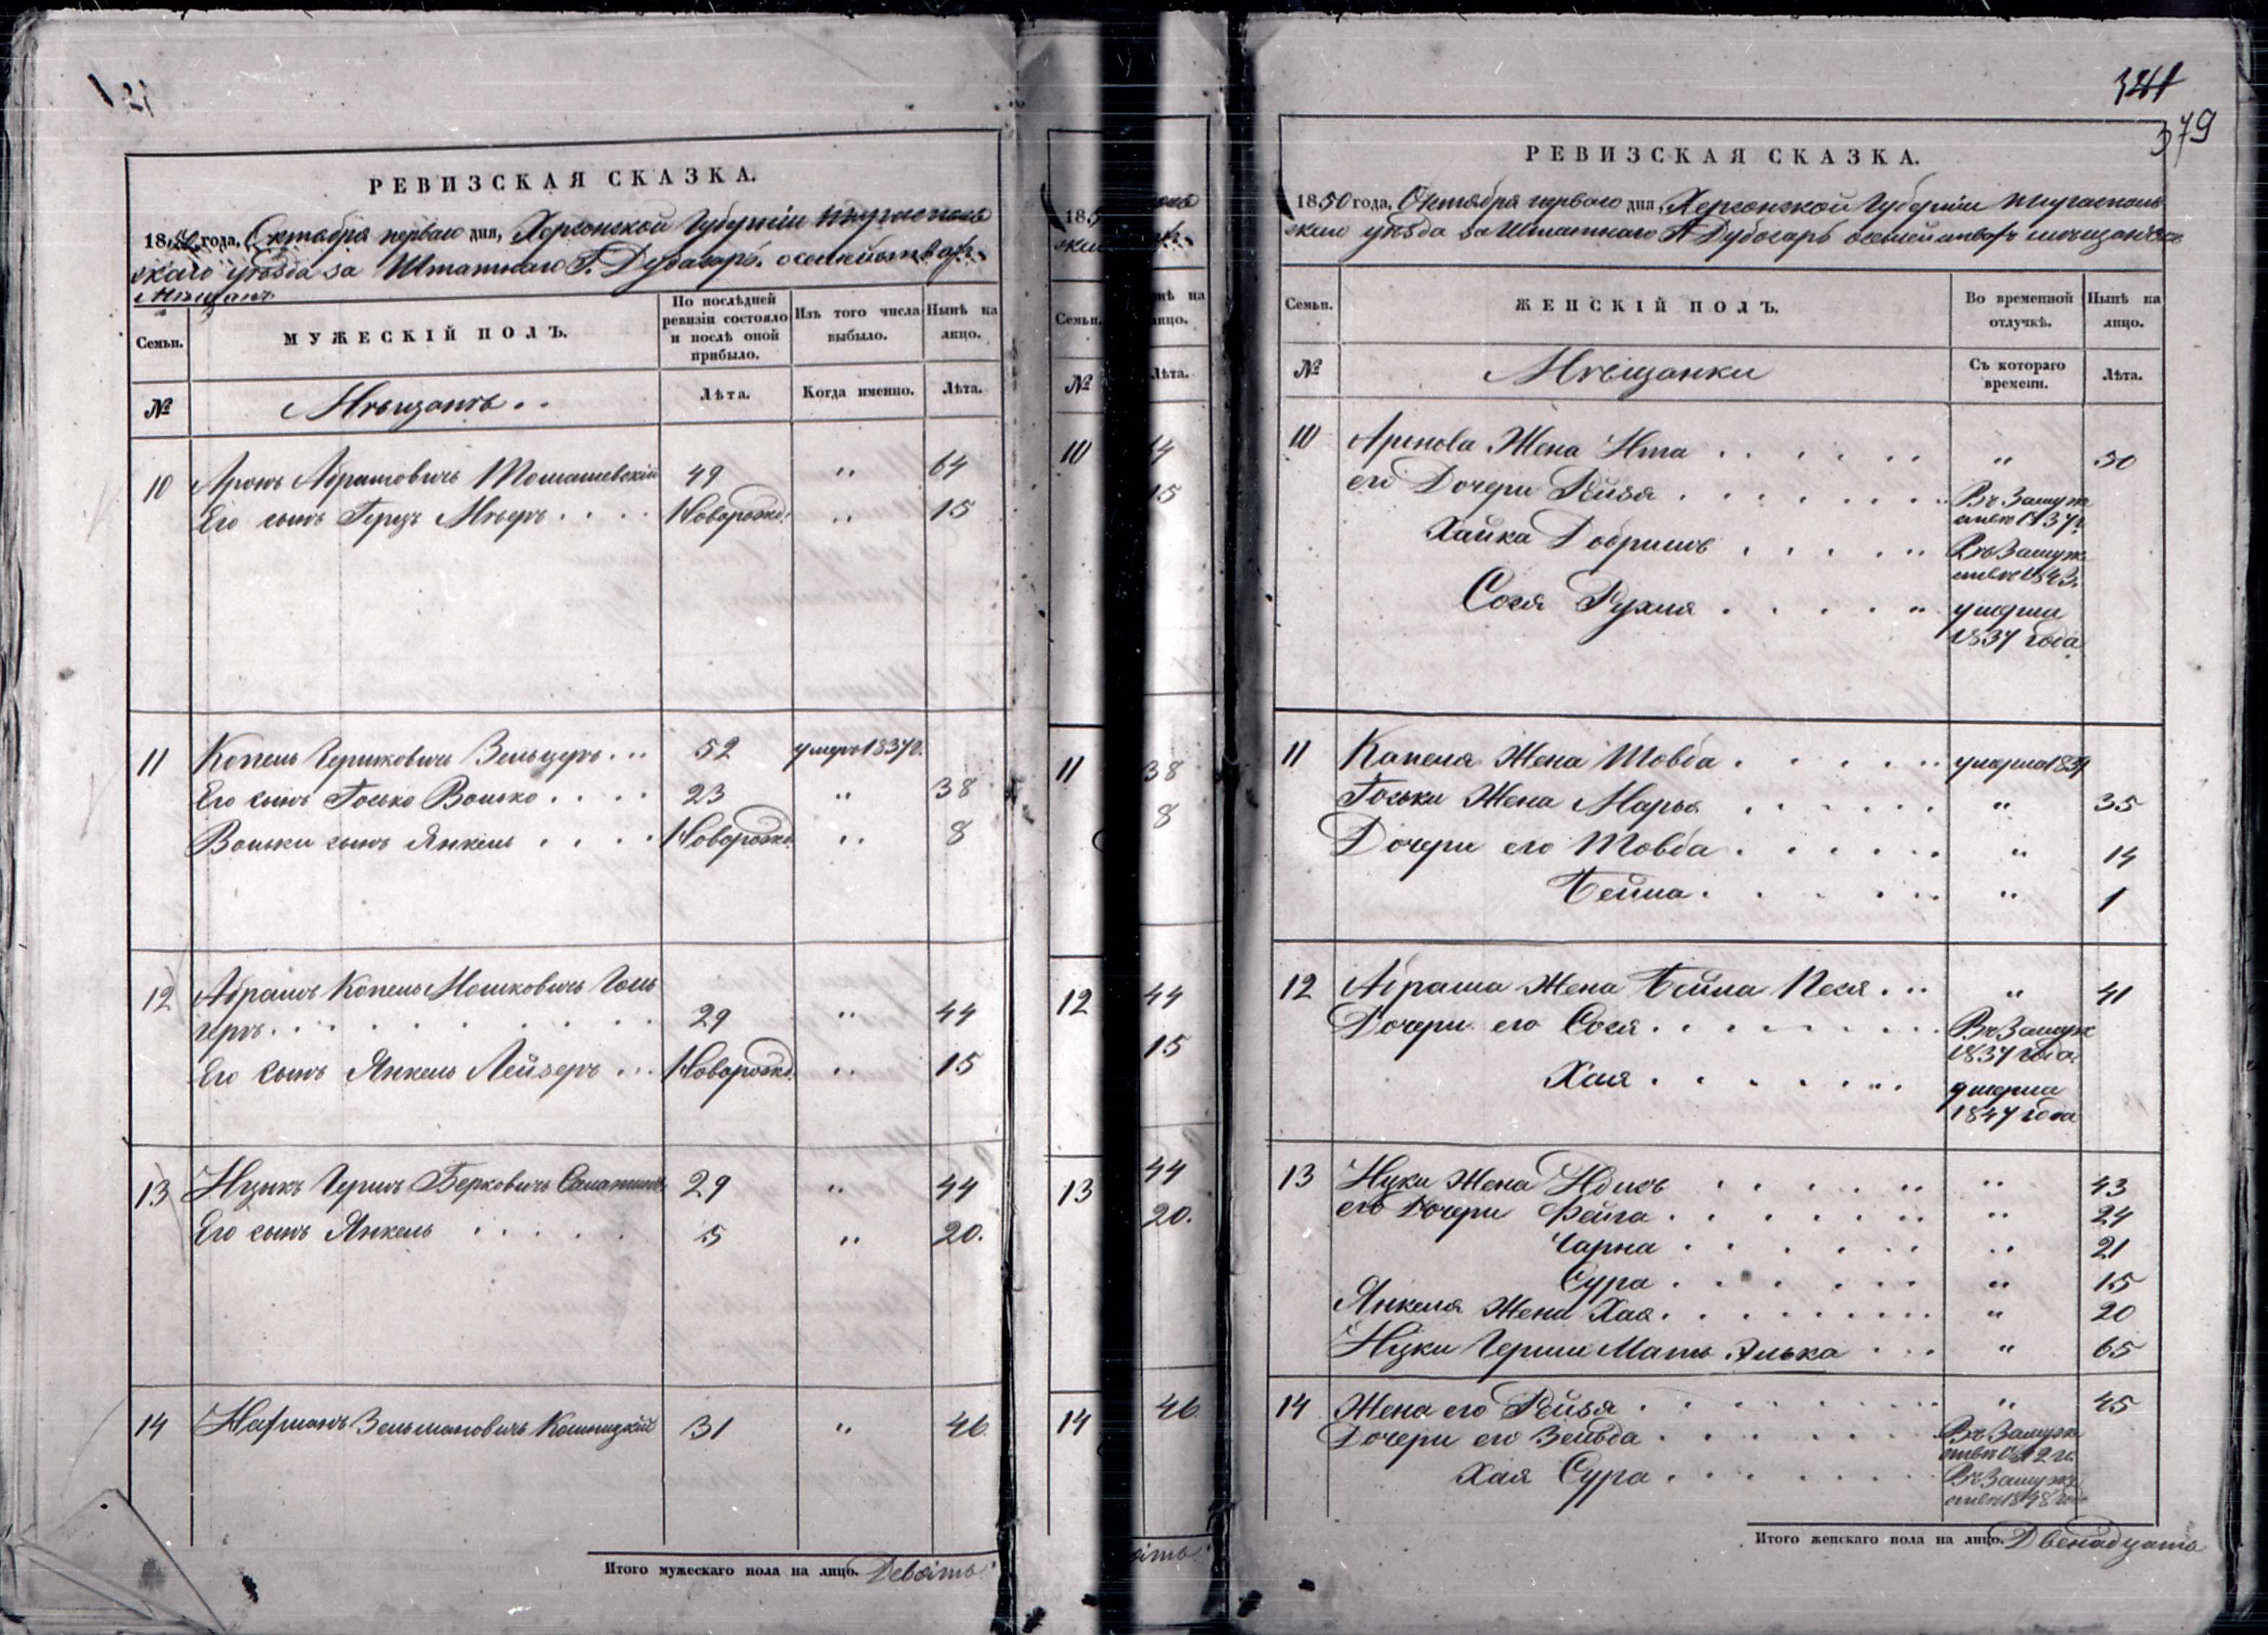 РЕВИЗСКАЯ СКАЗКА.
1850 года, Октября перваго дня, Херсонской Губерніи Тирасполь
скаго уѣзда за Штатнаго Г. Дубосаръ о
Мѣщанъ
Семьи. МУЖЕСКІЙ ПОЛЪ. По послѣдней ревизіи состояло и послѣ оной прибыло. Изъ того числа выбыло. Нынѣ на лицо.
№ Мѣщанъ.. Лѣта. Когда именно. Лѣта.
10 Аронъ Абрамовичъ Томашевскій 49 " 64
Его сынъ Герцъ Мееръ.... Новорожд. " 15
11 Копель Гершковичъ Зельцеръ... 52 умеръ 1837г.
Его сынъ Iосько Волько.... 23 " 38
Вольки сынъ Янкель.... Новорожд. " 8
12 Абрамъ Копель Мошковичъ Голь
церъ......... 29 " 44
Его сынъ Янкель Лейзеръ... Новорожд. " 15
13 Ицыкъ Гершъ Берковичъ 29 " 44
Его сынъ Янкель..... 5 " 20.
14 Нафманъ Зельмановичъ 31 " 46
Итого мужескаго пола на лицо. Девять.
185
Семьи. нѣ на
лицо.
№ Лѣта.
10 4
15
11 38
8
12 44
15
13 44
20.
14 46
ять.
341
379
РЕВИЗСКАЯ СКАЗКА.
1850 года, Октября перваго дня, Херсонской Губерніи Тирасполь
скаго уѣзда за Штатнаго Г Дубосаръ о мѣщанъ
Семьи. ЖЕНСКІЙ ПОЛЪ. Во временной отлучкѣ. Нынѣ на лицо.
№ Мѣщанки Съ котораго времени. Лѣта.
10 Аронова Жена Ита...... " 50
его Дочери Рейза........ Въ Замуж
ствѣ 1837г.
Хайка Добришъ...... Въ Замуж
ствѣ 1843.
Сося Рухля..... умерла
1837 года
11 Копеля Жена Товба...... умерла 1839
Iоськи Жена Марья...... " 35
Дочери его Товба...... " 14
Бейла...... " 1
12 Абрама Жена Бейла Песя... " 41
Дочери его Сося....... Въ Замуж
1837 года.
Хая....... умерла
1847 года
13 Ицки Жена Идись...... " 43
его Дочери Фейга...... " 24
Чарна...... " 21
Сура...... " 15
Янкеля Жена Хая........ " 20
Ицки Герши Мать Элька... " 65
14 Жена его Рейза........ " 45
Дочери его Зельда....... Въ Замуж
ствѣ 1842 г.
Хая Сура....... Въ Замуж
ствѣ 1848 года
Итого женскаго пола на лицо. Двенадцать